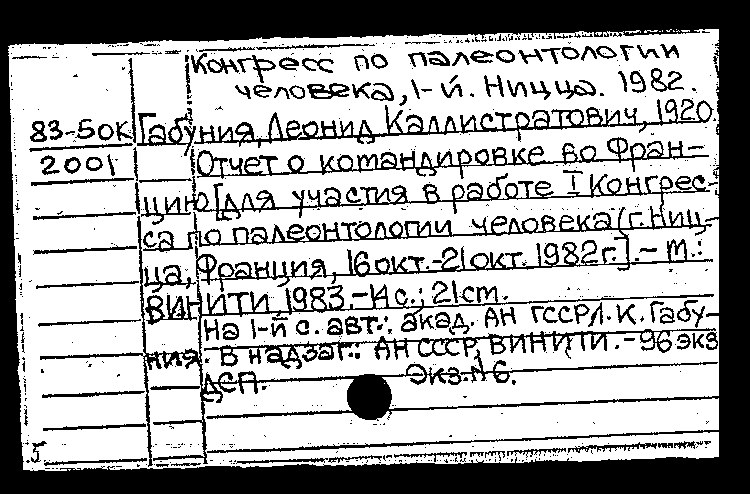 Конгресс по палеонтологии
человека, 1-й. Ницца. 1982.
83-50К Габуния, Леонид Каллистратович, 1920
2001 Отчет о командировке во Фран-
цию [для участия в работе I Конгрес-
са по палеонтологии человека (г. Ниц-
ца, Франция, 16 окт.-21 окт. 1982 г.]. - М.:
ВИНИТИ, 1983. - И с.; 21 ст.
На 1-й с. авт.: акад. АН ГССР Л. К. Габу-
ния. В надзаг.: АН СССР, ВИНИТИ. - 96 экз
ДСП. Экз. № 6.
5